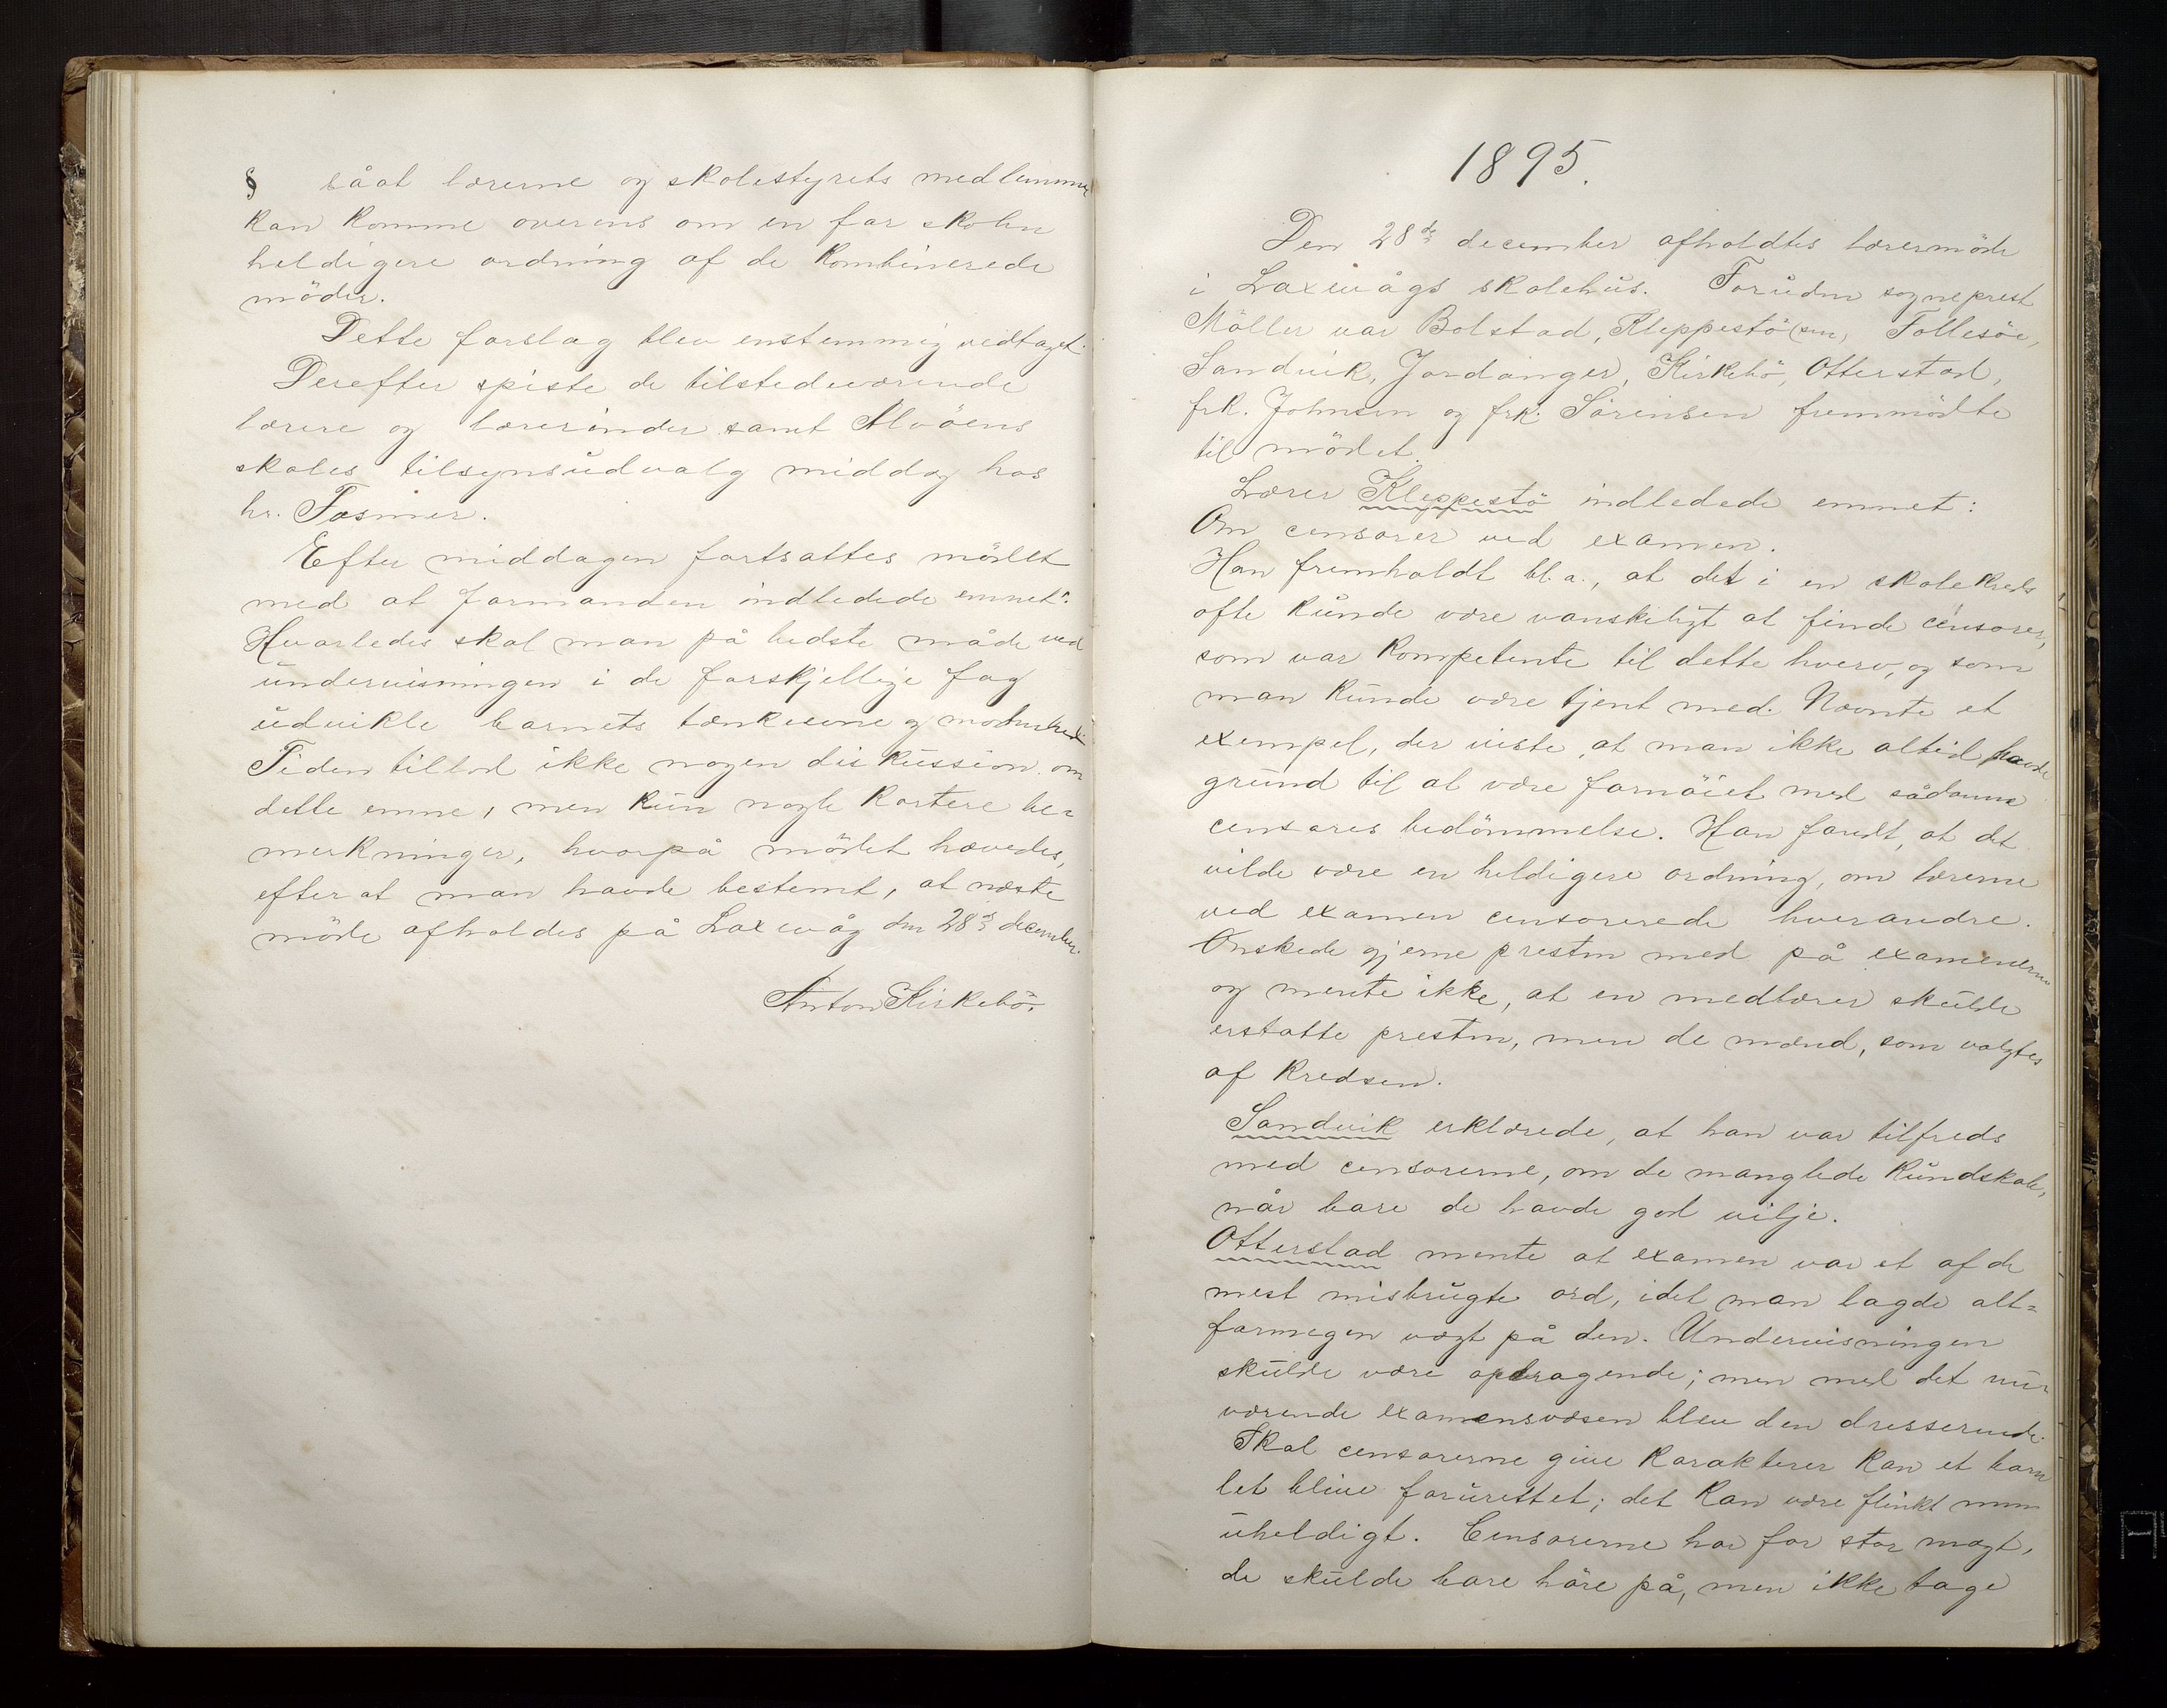 § såat lærerne og skolestyrets medlemmer
kan komme overens om en for skolen
heldigere ordning af de kombinerede
möder.
Dette forslag blev enstemmig vedtaget.
Derefter spiste de tilstedeværende
lærere og lærerinder samt Alvöens
skoles tilsynsudvalg middag hos
hr. Fasmer.
Efter middagen fortsattes mödet
med at formanden indledede emnet:
Hvorledes skal man på bedste måde ved
undervisningen i de forskjellige fag
udvikle barnets tænkeevne og
Tiden tillod ikke nogen diskussion om
dette emne, men kun nogle kortere be-
merkninger, hvorpå mödet hævedes,
efterat man havde bestemt, at næste
möde afholdes på Laxevåg den 28de december.
Anton Kirkebö.
1895.
Den 28de december afholdtes lærermöde
i Laxevågs skolehus. Foruden sogneprest
Möller var Bolstad, Kleppestö (sen), Follesöe,
Sandvik, Jordanger, Kirkebö, Otterstad,
frk. Johnsen og frk. Sörensen fremmödte
til mödet.
Lærer Kleppestö indledede emnet:
Om censorer ved examen.
Han fremholdt bl. a., at det i en skolekreds
ofte kunde være vanskeligt at finde censorer,
som var kompetente til dette hverv, og som
man kunde være tjent med. Nævnte et
exempel, der viste, at man ikke altid havde
grund til at være fornöiet med sådanne
censores bedömmelse. Han fandt, at det
vilde være en heldigere ordning, om lærerne
ved examen censorerede hverandre.
Önskede gjerne presten med på examenerne
og mente ikke, at en medlærer skulde
erstatte presten, men de mænd, som valgtes
af kredsen.
Sandvik erklærede, at han var tilfreds
med censorerne, om de manglede kundskab,
når bare de havde god vilje.
Otterstad mente at examen var et af de
mest misbrugte ord, idet man lagde alt-
formegen vægt på den. Undervisningen
skulde være opdragende; men med det nu-
værende examensvæsen blev den dresserende.
Skal censorerne give karakterer kan et barn
let blive forurettet; det kan være flinkt men
uheldigt. Censorerne har for stor magt,
de skulde bare höre på, men ikke tage